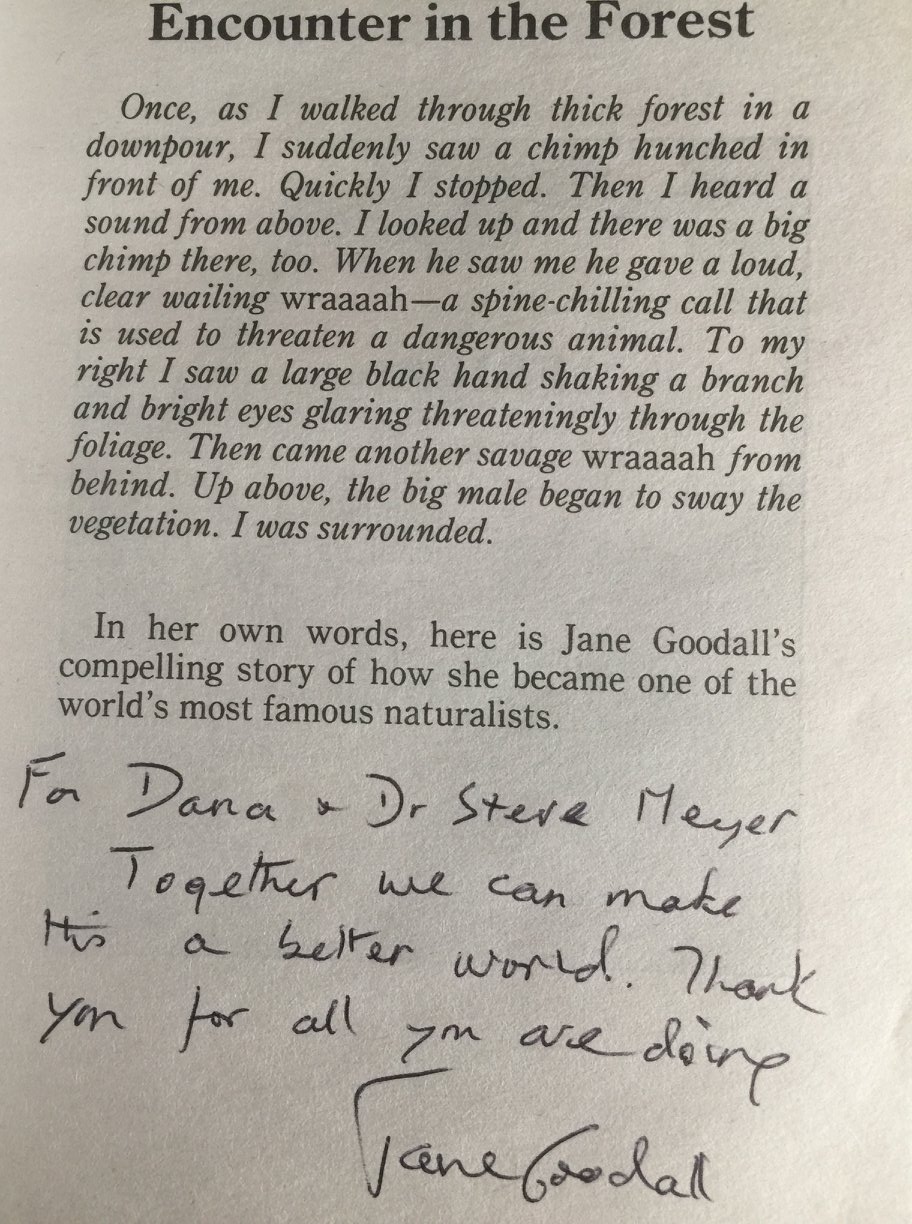 Encounter in the Forest
Once, as I walked through thick forest in a
downpour, I suddenly saw a chimp hunched in
front of me. Quickly I stopped. Then I heard a
sound from above. I looked up and there was a big
chimp there, too. When he saw me he gave a loud,
clear wailing wraaaah—a spine-chilling call that
is used to threaten a dangerous animal. To my
right I saw a large black hand shaking a branch
and bright eyes glaring threateningly through the
foliage. Then came another savage wraaaah from
behind. Up above, the big male began to sway the
vegetation. I was surrounded.
In her own words, here is Jane Goodall's
compelling story of how she became one of the
world's most famous naturalists.
For Dana & Dr Steve Meyer
Together we can make
this a better world. Thank
you for all you are doing
Jane Goodall